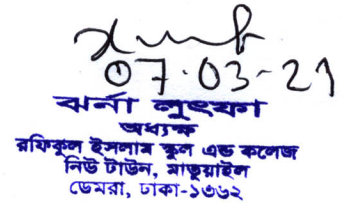 07.03-21
ঝর্না লুৎফা
অধ্যক্ষ
রফিকুল ইসলাম স্কুল এন্ড কলেজ
নিউ টাউন, মাতুয়াইল
ডেমরা, ঢাকা-১৩৬২